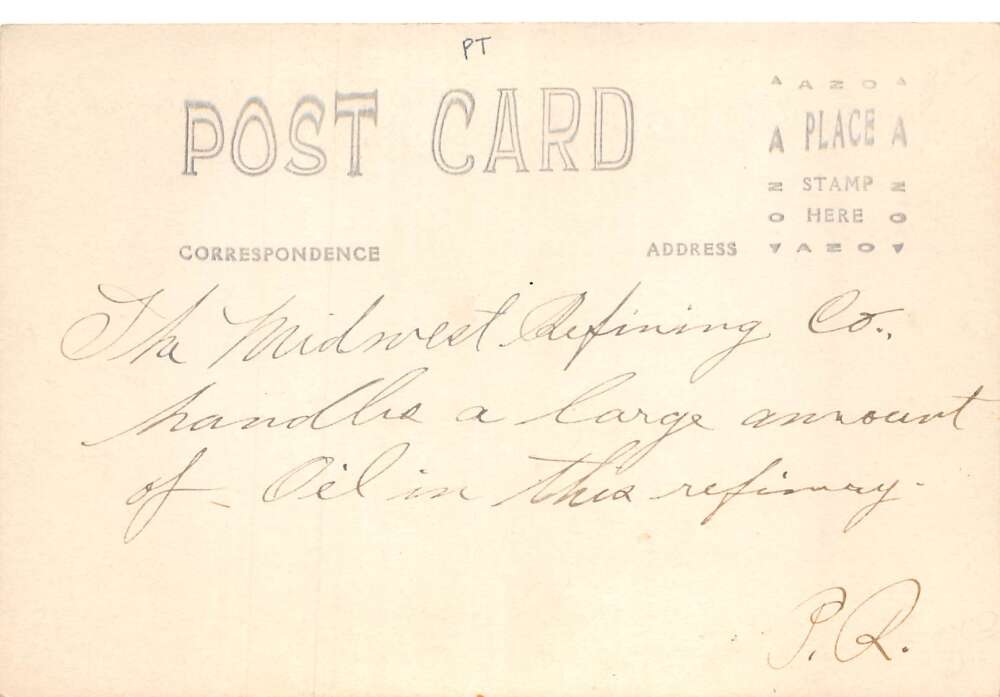 PT
POST CARD
AZO
A PLACE A
N STAMP N
O HERE O
CORRESPONDENCE
ADDRESS
AZO
The Midwest Refining Co.,
handles a large amount
of Oil in this refinery.
P.R.